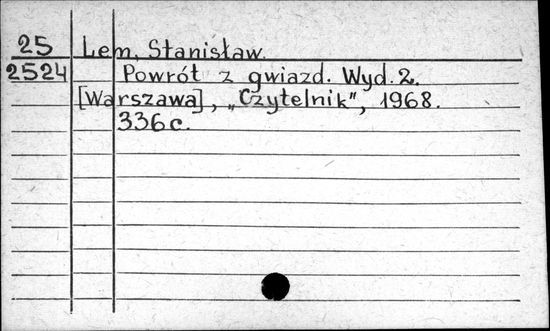 25 Lem, Stanisław.
2524 Powrót z gwiazd. Wyd. 2.
[Warszawa], „Czytelnik”, 1968.
336 с.